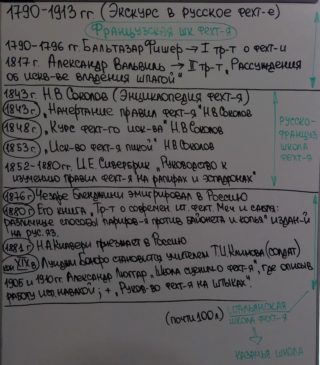 1790-1913 гг (Экскурс в русское фехт-е)
Французская шк фехт-я
1790-1796 гг Бальтазар Фишер → I тр-т о фехт-и
1817 г. Александр Вальвиль → II тр-т, "Рассуждения
об иск-ве владения шпагой"
1843г. Н.В Соколов (Энциклопедия фехт-я)
1843г. "Начертание правил фехт-я" Н.В Соколов
1848г. "Курс фехт-го иск-ва" Н.В Соколов
1853г. "Иск-во фехт-я пикой" Н.В Соколов
1852-1880гг. И.Е. Сивербрик "Руководство к
изучению правил фехт-я на рапирах и эспадронах"
РУССКО-
ФРАНЦУЗ.
ШКОЛА
ФЕХТ-Я
1876г Чезаре Бленджини эмигрировал в Россию
1880г Его книга "Тр-т о соврем. ит. фехт. Меч и сабля:
различные способы париров-я против байонета и копья" издан-й
на рус. яз.
1881г Н.А Киавери приезжает в Россию
кон XIX в Луиджи Бонфо становится учителем Т.И Климова (солдат)
1905 и 1910гг Александр Люггар "Школа сужения о фехт-я", где описыв
работу исп навахой; + "Руков-во фехт-я на штыках"
(почти 100 л)
ИТАЛЬЯНСКАЯ
ШКОЛА ФЕХТ-Я
КАЗАЧЬЯ ШКОЛА